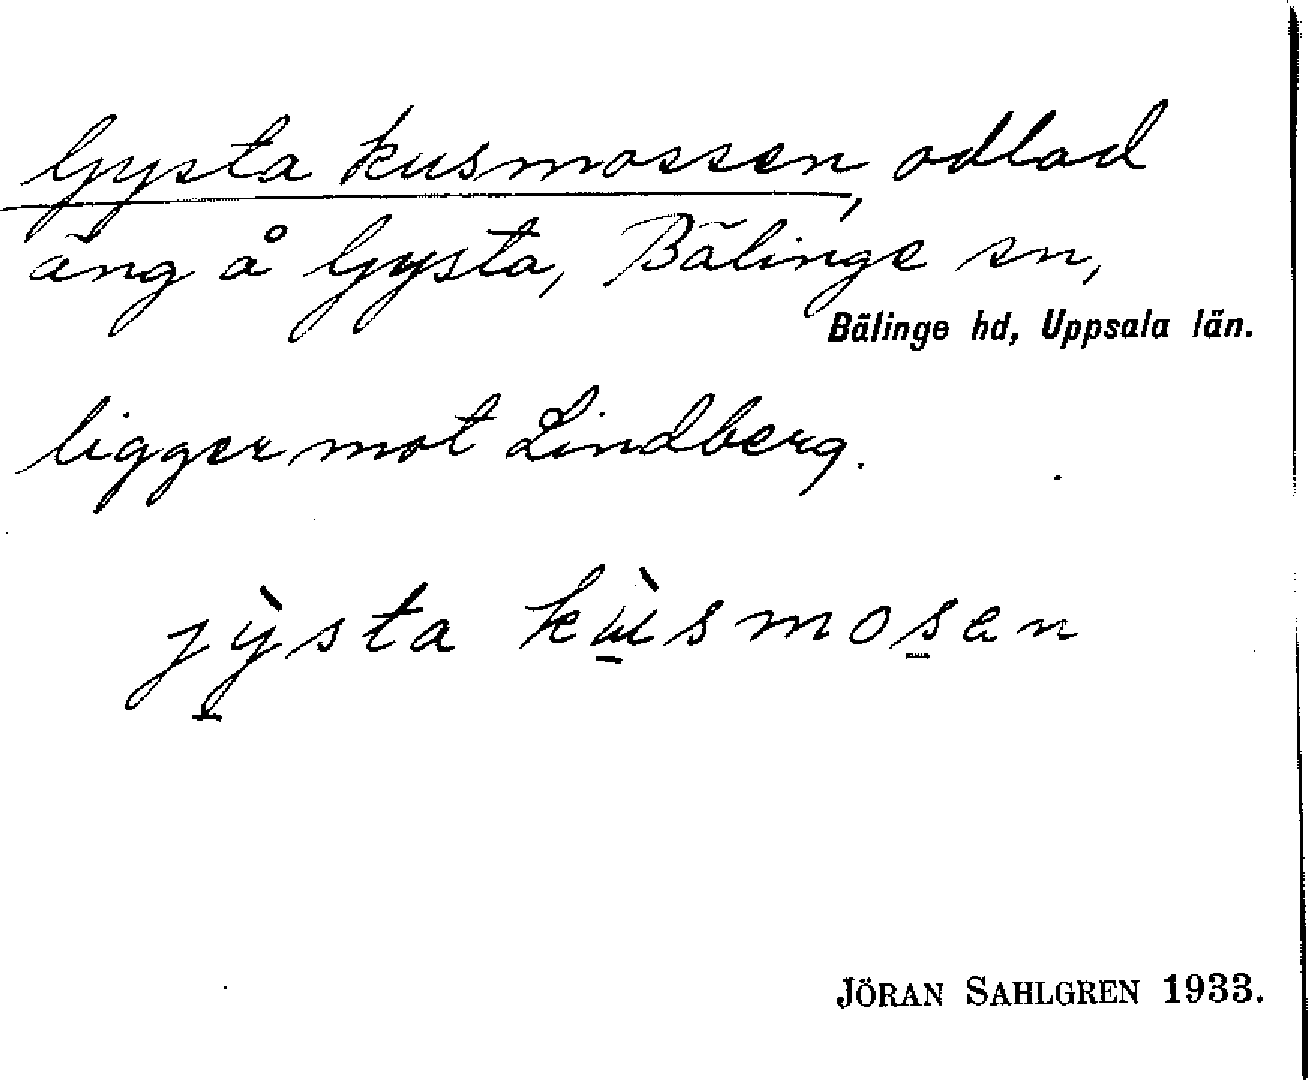 Gysta kusmossen, odlad
äng å Gysta, Bälinge sn,
Bälinge hd, Uppsala län.
ligger mot Lindberg.
jỳ̠sta kɯ̠̀smos̠en
JÖRAN SAHLGREN 1933.